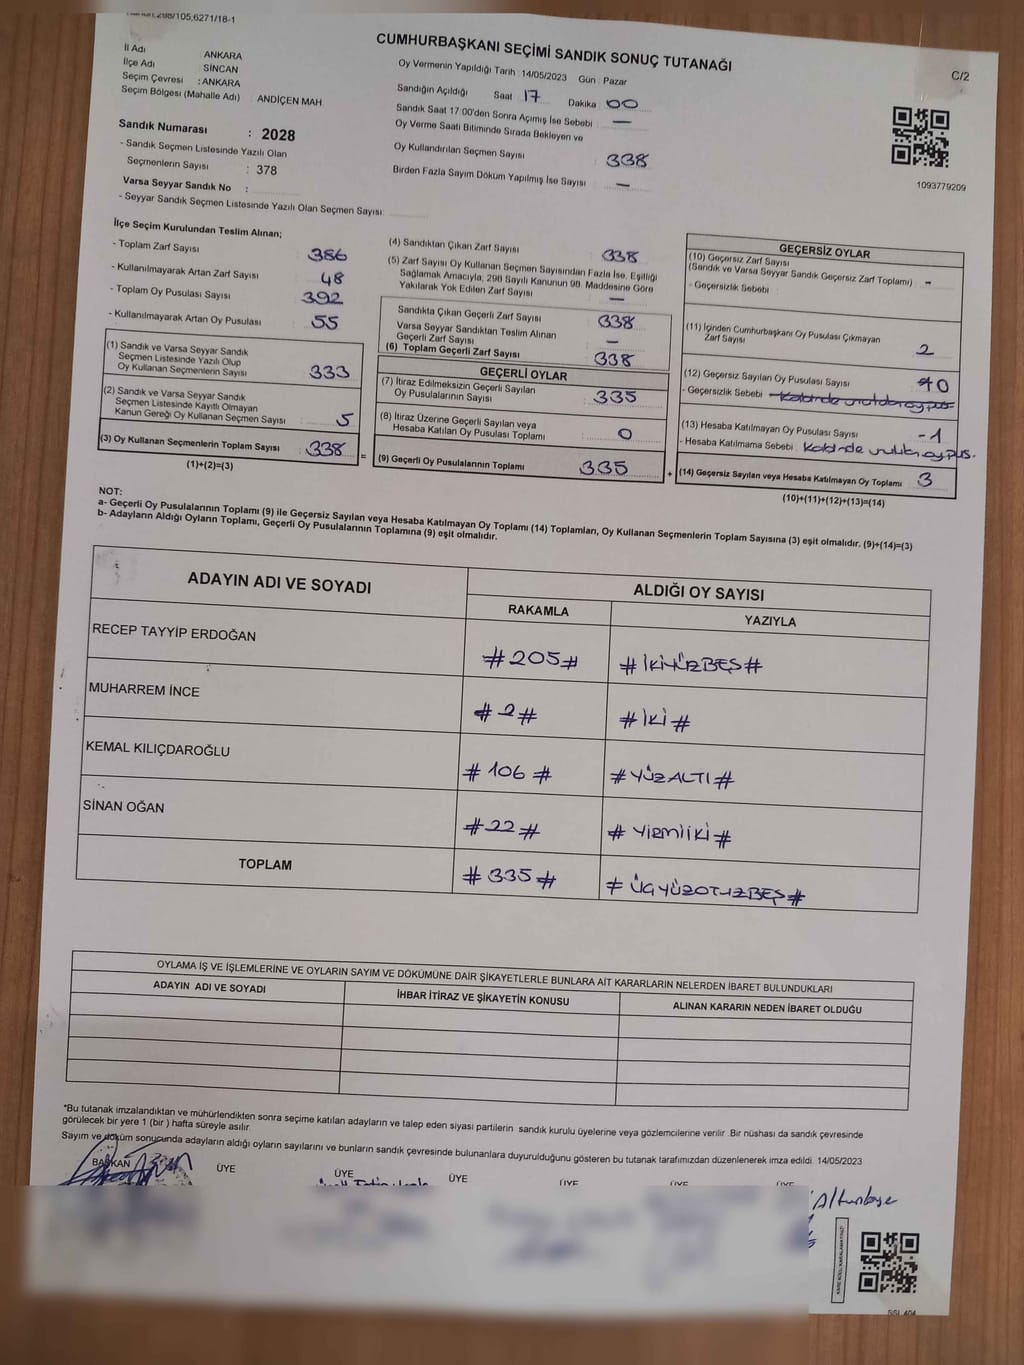 CUMHURBAŞKANI SEÇİMİ SANDIK SONUÇ TUTANAĞI
C/2
İl Adı ANKARA
İlçe Adı SİNCAN
Seçim Çevresi : ANKARA
Seçim Bölgesi (Mahalle Adı) : ANDİÇEN MAH
Sandık Numarası : 2028
- Sandık Seçmen Listesinde Yazılı Olan
Seçmenlerin Sayısı : 378
Varsa Seyyar Sandık No :
- Seyyar Sandık Seçmen Listesinde Yazılı Olan Seçmen Sayısı:
Oy Vermenin Yapıldığı Tarih : 14/05/2023 Gün : Pazar
Sandığın Açıldığı Saat 17 Dakika 00
Sandık Saat 17.00'den Sonra Açımış İse Sebebi : —
Oy Verme Saati Bitiminde Sırada Bekleyen ve
Oy Kullandırılan Seçmen Sayısı : 338
Birden Fazla Sayım Döküm Yapılmış İse Sayısı : —
1093779209
İlçe Seçim Kurulundan Teslim Alınan;
- Toplam Zarf Sayısı 386
- Kullanılmayarak Artan Zarf Sayısı 48
- Toplam Oy Pusulası Sayısı 392
- Kullanılmayarak Artan Oy Pusulası 55
(1) Sandık ve Varsa Seyyar Sandık
Seçmen Listesinde Yazılı Olup
Oy Kullanan Seçmenlerin Sayısı 333
(2) Sandık ve Varsa Seyyar Sandık
Seçmen Listesinde Kayıtlı Olmayan
Kanun Gereği Oy Kullanan Seçmen Sayısı 5
(3) Oy Kullanan Seçmenlerin Toplam Sayısı 338
(1)+(2)=(3)
(4) Sandıktan Çıkan Zarf Sayısı 338
(5) Zarf Sayısı Oy Kullanan Seçmen Sayısından Fazla İse, Eşitliği
Sağlamak Amacıyla, 298 Sayılı Kanunun 98. Maddesine Göre
Yakılarak Yok Edilen Zarf Sayısı —
Sandıkta Çıkan Geçerli Zarf Sayısı 338
Varsa Seyyar Sandıktan Teslim Alınan
Geçerli Zarf Sayısı —
(6) Toplam Geçerli Zarf Sayısı 338
GEÇERLİ OYLAR
(7) İtiraz Edilmeksizin Geçerli Sayılan
Oy Pusulalarının Sayısı 335
(8) İtiraz Üzerine Geçerli Sayılan veya
Hesaba Katılan Oy Pusulası Toplamı 0
(9) Geçerli Oy Pusulalarının Toplamı 335
GEÇERSİZ OYLAR
(10) Geçersiz Zarf Sayısı
(Sandık ve Varsa Seyyar Sandık Geçersiz Zarf Toplamı) -
- Geçersizlik Sebebi :
(11) İçinden Cumhurbaşkanı Oy Pusulası Çıkmayan
Zarf Sayısı 2
(12) Geçersiz Sayılan Oy Pusulası Sayısı 0
- Geçersizlik Sebebi
(13) Hesaba Katılmayan Oy Pusulası Sayısı - 1
- Hesaba Katılmama Sebebi : Kabinde unutulan oy pus.
(14) Geçersiz Sayılan veya Hesaba Katılmayan Oy Toplamı 3
(10)+(11)+(12)+(13)=(14)
NOT:
a- Geçerli Oy Pusulalarının Toplamı (9) ile Geçersiz Sayılan veya Hesaba Katılmayan Oy Toplamı (14) Toplamları, Oy Kullanan Seçmenlerin Toplam Sayısına (3) eşit olmalıdır. (9)+(14)=(3)
b- Adayların Aldığı Oyların Toplamı, Geçerli Oy Pusulalarının Toplamına (9) eşit olmalıdır.
ADAYIN ADI VE SOYADI
ALDIĞI OY SAYISI
RAKAMLA YAZIYLA
RECEP TAYYİP ERDOĞAN #205# #İKİYÜZBEŞ#
MUHARREM İNCE #2# #İKİ#
KEMAL KILIÇDAROĞLU #106# #YÜZALTI#
SİNAN OĞAN #22# #YİRMİİKİ#
TOPLAM #335# #ÜÇYÜZOTUZBEŞ#
OYLAMA İŞ VE İŞLEMLERİNE VE OYLARIN SAYIM VE DÖKÜMÜNE DAİR ŞİKAYETLERLE BUNLARA AİT KARARLARIN NELERDEN İBARET BULUNDUKLARI
ADAYIN ADI VE SOYADI İHBAR İTİRAZ VE ŞİKAYETİN KONUSU ALINAN KARARIN NEDEN İBARET OLDUĞU
*Bu tutanak imzalandıktan ve mühürlendikten sonra seçime katılan adayların ve talep eden siyasi partilerin sandık kurulu üyelerine veya gözlemcilerine verilir. Bir nüshası da sandık çevresinde
görülecek bir yere 1 (bir) hafta süreyle asılır.
Sayım ve döküm sonucunda adayların aldığı oyların sayılarını ve bunların sandık çevresinde bulunanlara duyurulduğunu gösteren bu tutanak tarafımızdan düzenlenerek imza edildi. 14/05/2023
BAŞKAN ÜYE ÜYE ÜYE ÜYE ÜYE ÜYE